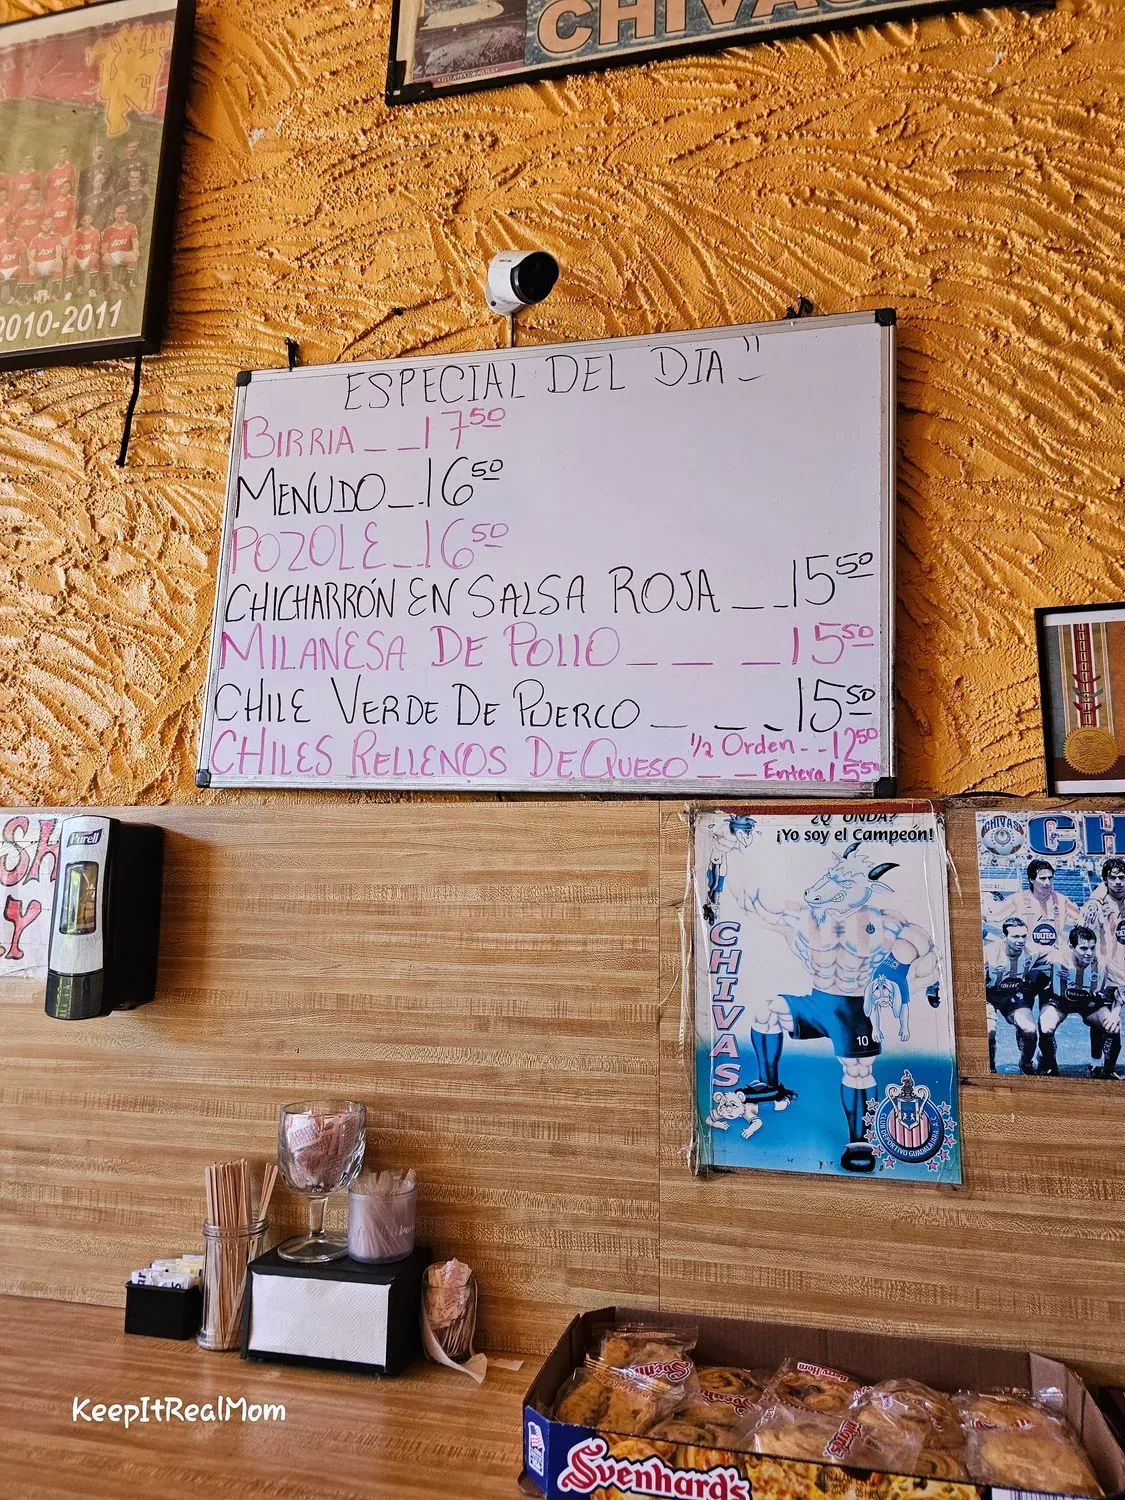 CHIVAS
AON
2010-2011
ESPECIAL DEL DIA"
BIRRIA _ _ 17 50
MENUDO _ . 16 50
POZOLE _ _ 16 50
CHICHARRÓN EN SALSA ROJA _ _ 15 50
MILANESA DE POLLO _ _ _ 15 50
CHILE VERDE DE PUERCO _ _ _ 15 50
CHILES RELLENOS DE QUESO 1/2 Orden - - 12 50
_ _ Entera 15 50
Purell
SH
Y
¿Q' ONDA?
¡Yo soy el Campeón!
CHIVAS
10
CLUB DEPORTIVO GUADALAJARA A.C.
CHIVAS
CH
TOLTECA
Berry Horn
Svenhard's
KeepItRealMom